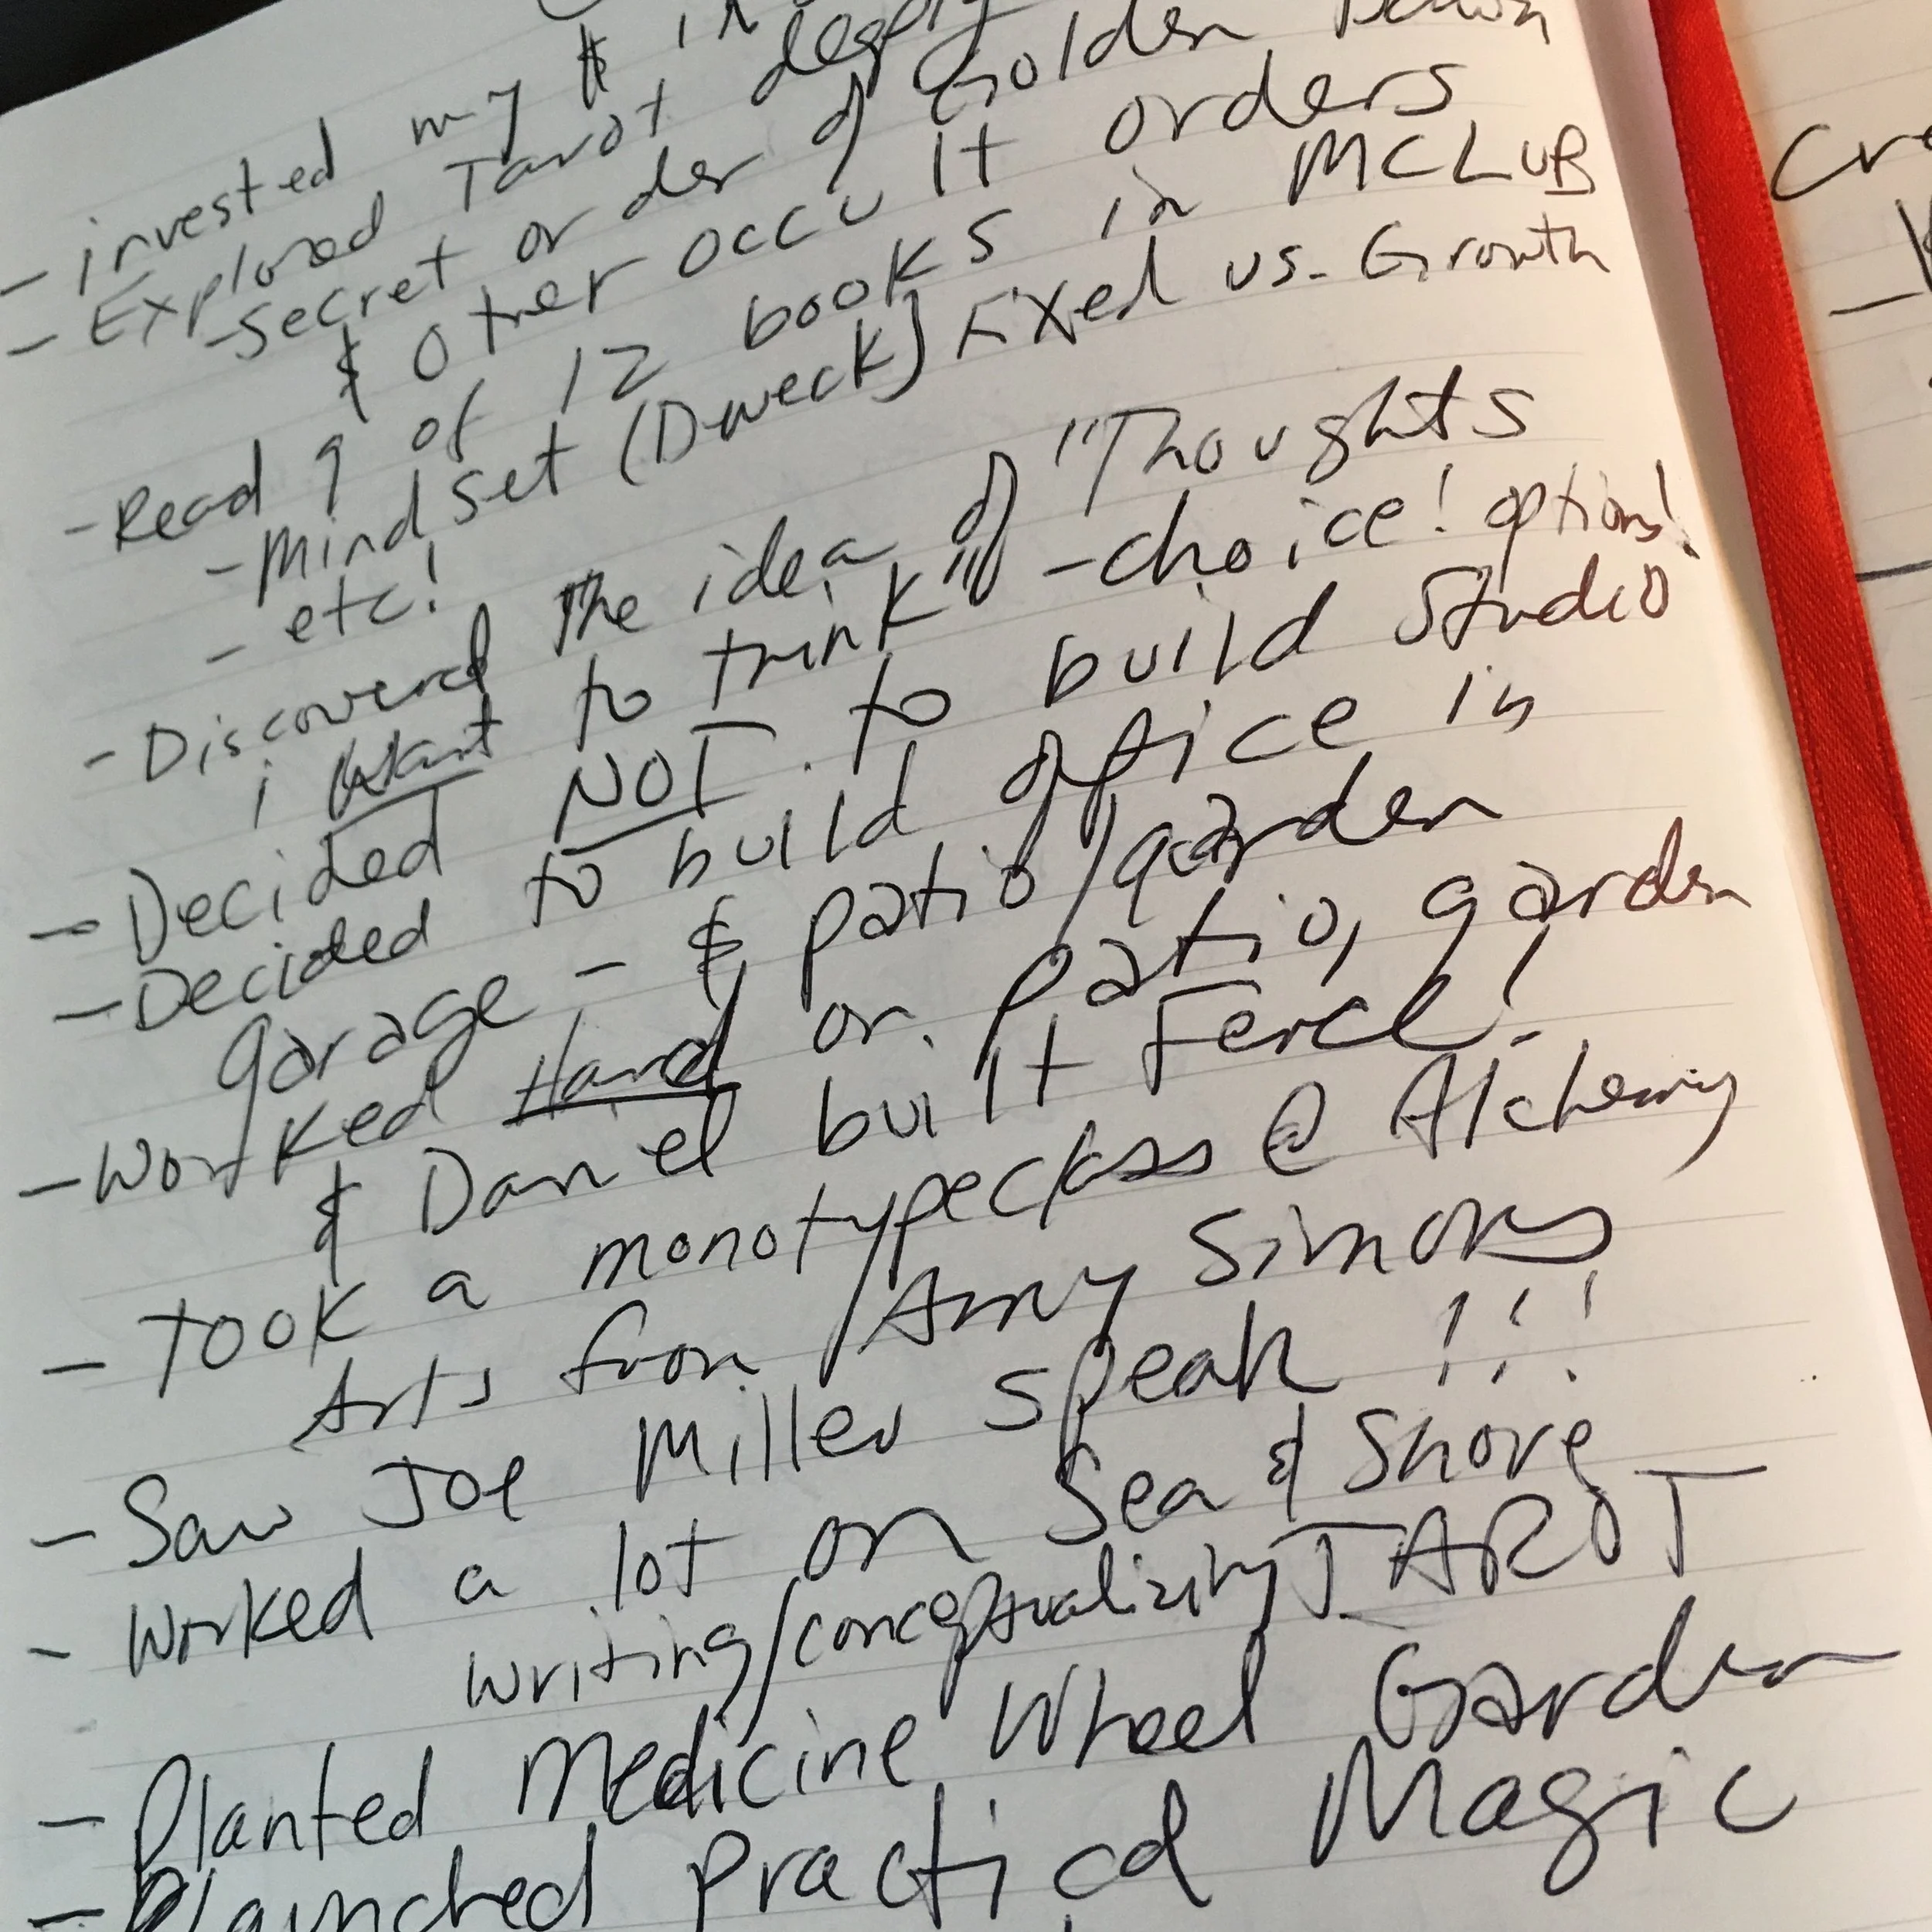 - invested my $ in
- Explored Tarot deeply
- Secret order of Golden Dawn
& other occult orders
- Read 9 of 12 books in MCLUB
- Mindset (Dweck) Fixed vs. Growth
- etc!
- Discovered the idea of "Thoughts
i want to think" - choice! options!
- Decided NOT to build studio
- Decided to build office in
garage - & patio/garden
- Worked Hard on patio, garden
& Daniel built Fence!
- Took a monotype class @ Alchemy
Arts from Amy Simons
- Saw Joe Miller speak!!!
- Worked a lot on Sea & Shore
writing/conceptualizing TAROT
- Planted Medicine Wheel Garden
- launched Practical Magic
Cre